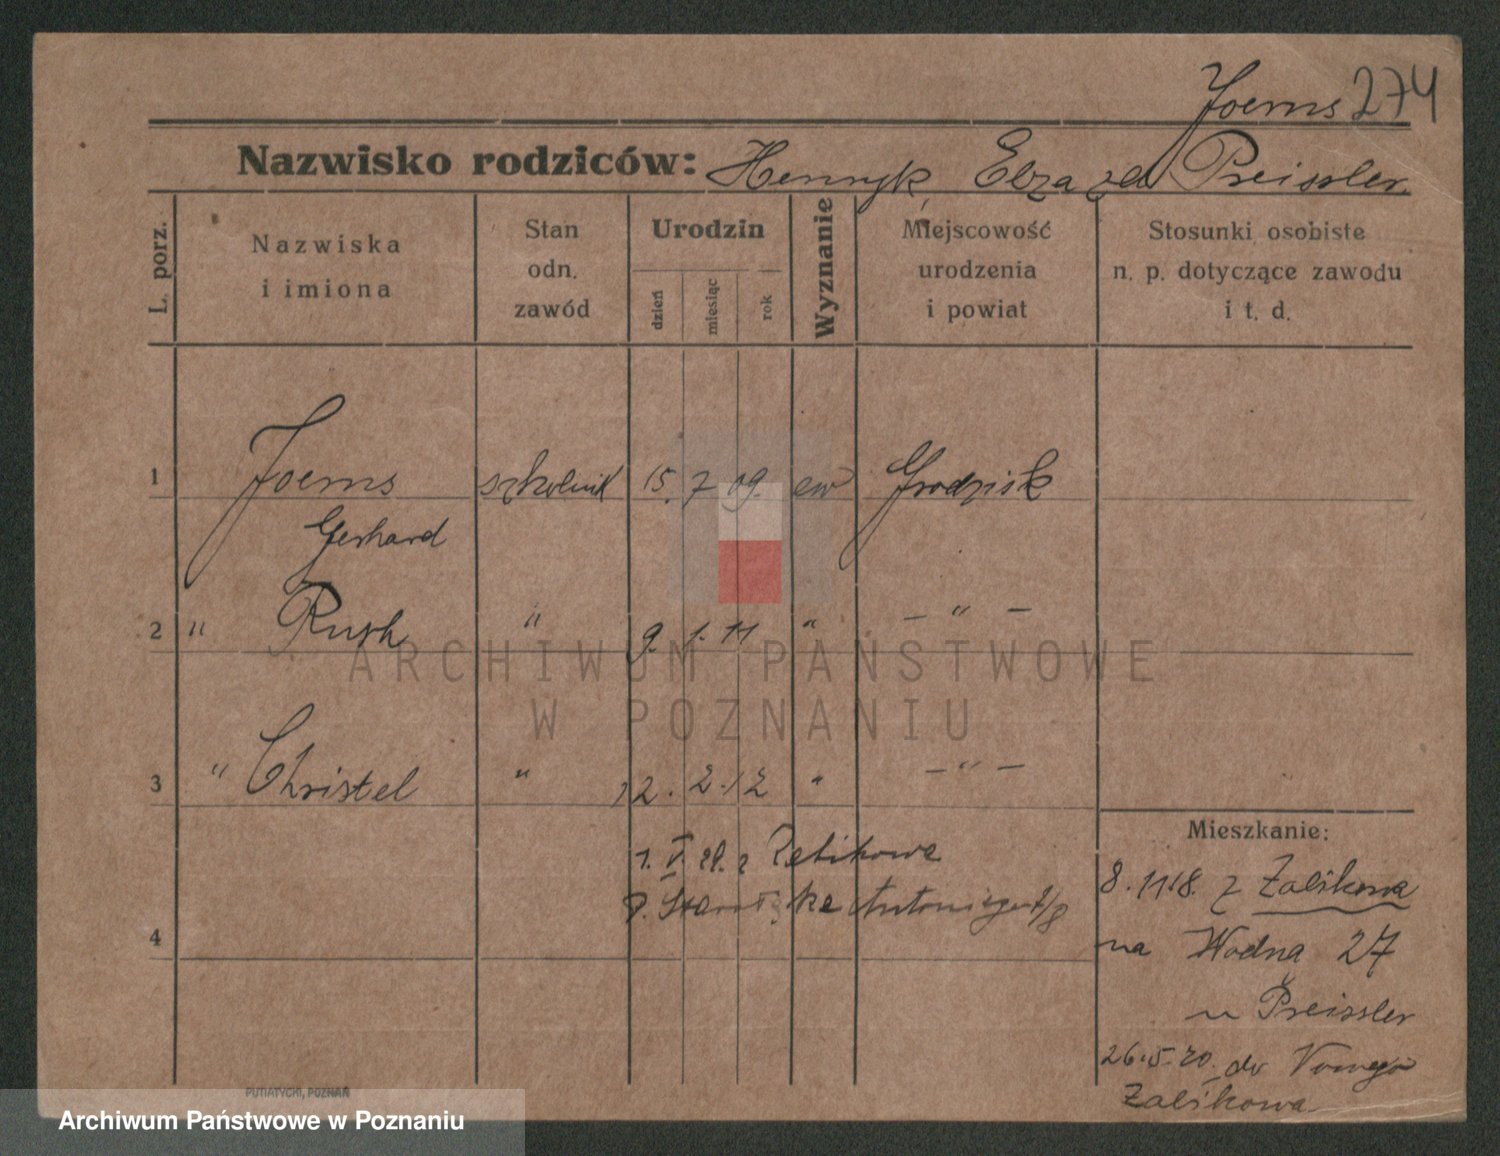 Joems 274
Nazwisko rodziców: Henryk Elza zd Preissler
L. porz.
Nazwiska
i imiona
Stan
odn.
zawód
Urodzin
dzień
miesiąc
rok
Wyznanie
Miejscowość
urodzenia
i powiat
Stosunki osobiste
n. p. dotyczące zawodu
i t. d.
1 Joems szkolnik 15. 7 09. ew Grodzisk
Gerhard
2 " Ruth " 9. 1. 11 " — " —
ARCHIWUM PAŃSTWOWE
W POZNANIU
3 " Christel " 12. 2. 12 " — " —
Mieszkanie:
1. V 21. z Żabikowa
8. 11 18. z Żabikowa
4
na Wodna 27
u Preissler
26. 5. 20. do Nowego
Żabikowa
PUTIATYCKI, POZNAŃ
Archiwum Państwowe w Poznaniu